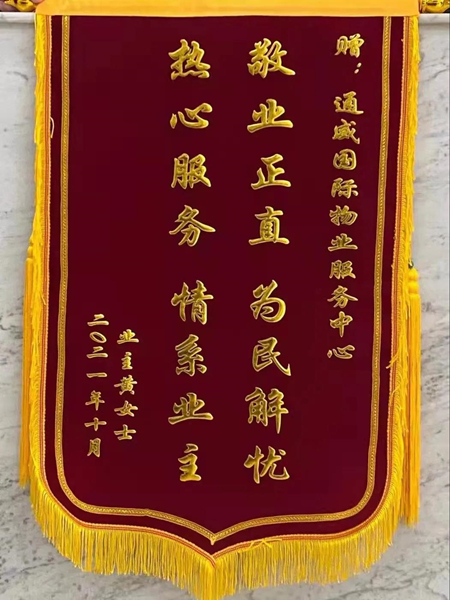 赠：通威国际物业服务中心
敬业正直 为民解忧
热心服务 情系业主
业主黄女士
二〇二一年十月